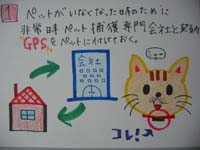 1
ペットがいなくなった時のために
非常時ペット捕獲専門会社と契約
GPSをペットに付けておく。
会社
ニャー